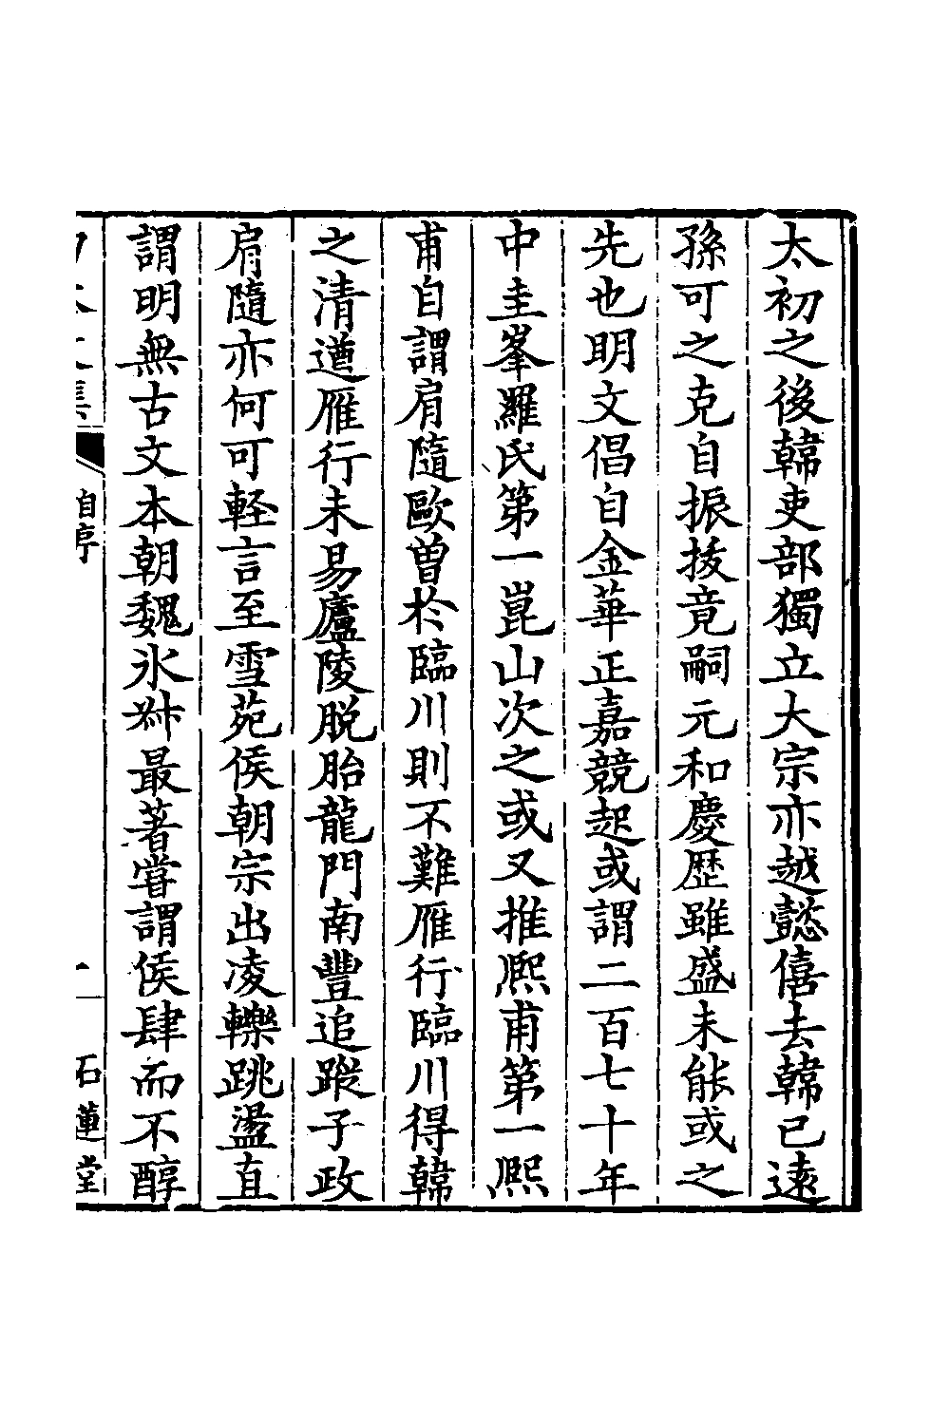 太初之後韓吏部獨立大宗亦越懿僖去韓已遠
孫可之克自振拔竟嗣元和慶歷雖盛未能或之
先也明文倡自金華正嘉競起或謂二百七十年
中圭峯羅氏第一崑山次之或又推熈甫第一熈
甫自謂肩隨歐曽於臨川則不難雁行臨川得韓
之清遒雁行未易廬陵脱胎龍門南豐追蹤子政
肩隨亦何可輕言至雪苑侯朝宗出凌轢跳盪直
謂明無古文本朝魏氷叔最著嘗謂侯肆而不醇
集 自序 一 石蓮堂